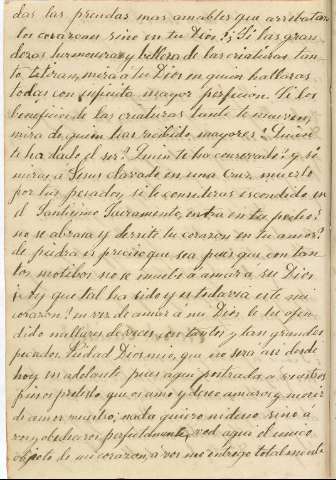 das las prendas mas amables que arrebatan
los corazones sino en tu Dios? ¿Si las gran
dezas hermosuras y belleza de las criaturas tan
to te tiran, mira a tu Dios en quien hallaras
todas con infinita mayor perfeccion. Si los
beneficios de las criaturas tanto te mueven,
mira de quien has recibido mayores? Quien
te ha dado el ser? Quien te ha conservado? y si
miras a Jesus clavado en una Cruz, muerto
por tus pecados, si lo consideras escondido en
el Santisimo Sacramento, entra en tu pecho?
no se abrasa y derrite tu corazon en tu amor?
de piedra es preciso que sea pues que con tan
tos motivos no se mueve a amar a su Dios
¡Ay que tal ha sido y es todavia este mi
corazon! en vez de amar a mi Dios le he ofen
dido millares de veces con tantos y tan grandes
pecados. Piedad Dios mio, que no será asi desde
hoy en adelante pues aqui postrada a vuestros
pies os protesto que os amo y deseo amaros y morir
de amor vuestro; nada quiero ni deseo sino a
vos y obedeceros perfectamente, ved aqui el unico
objeto de mi corazon, a vos me entrego totalmente